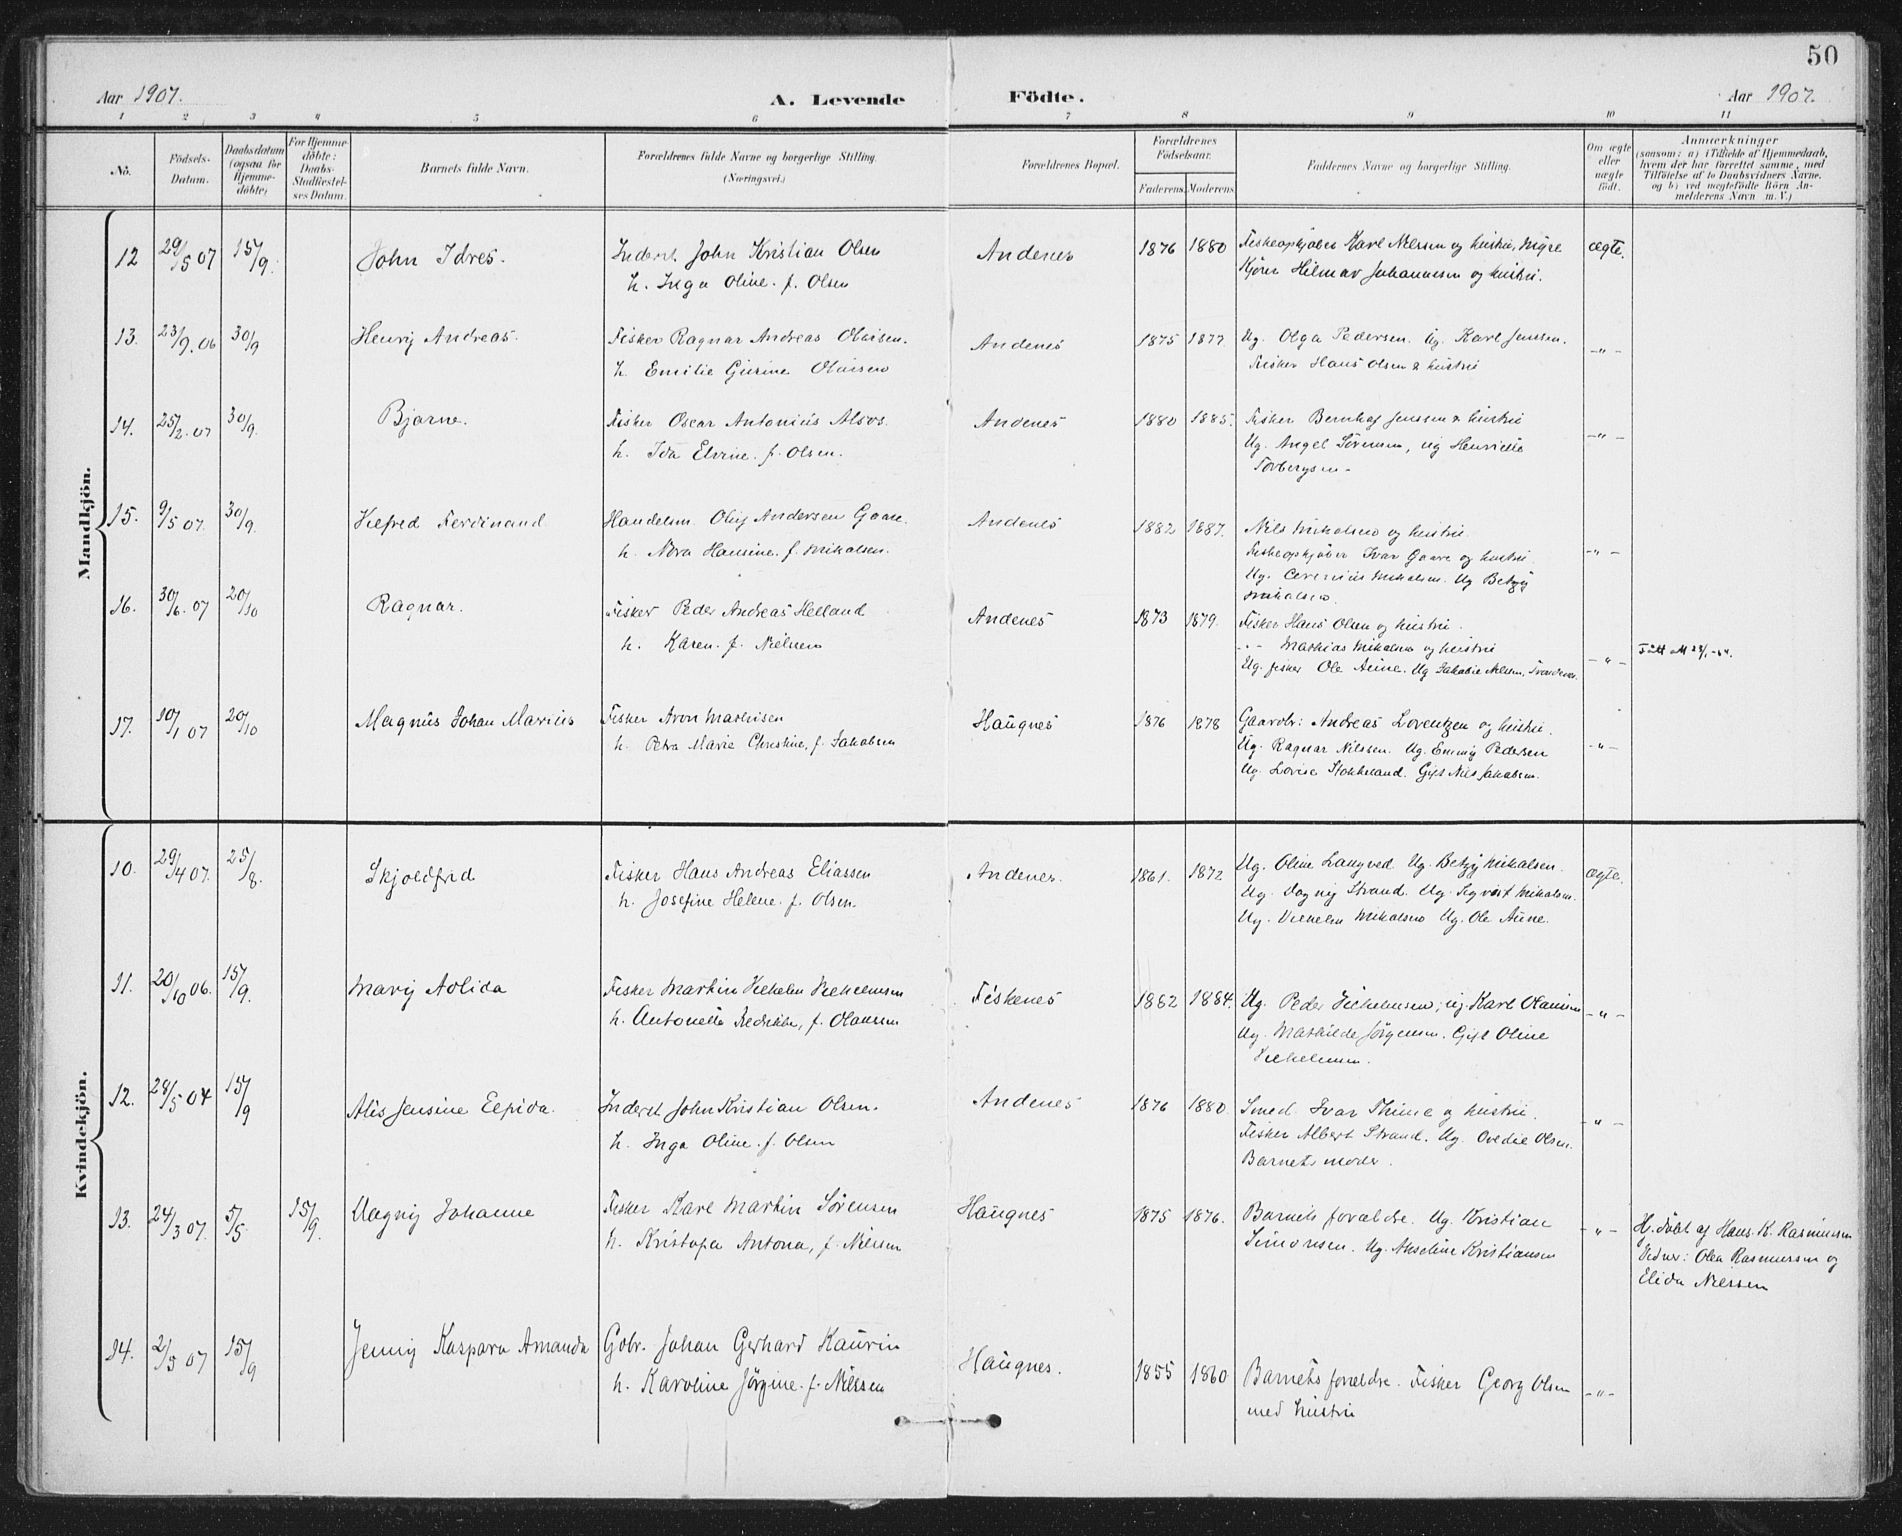 50
Aar 1907. A. Levende Födte. Aar 1907.
1 2 3 4 5 6 7 8 9 10 11
No. Födsels-Datum. Daabsdatum (ogsaa for Hjemme-döbte) For Hjemme-döbte: Daabs-Stadfæstel-ses Datum. Barnets fulde Navn. Forældrenes fulde Navne og borgerlige Stilling. (Næringsvei.) Forældrenes Bopæl. Forældrenes Födselsaar. Faderens. Moderens. Faddernes Navne og borgerlige Stilling. Om ægte eller uægte födt. Anmærkninger
(saasom: a) i Tilfælde af Hjemmedaab,
hvem der har forrettet samme, med
Tilföielse af to Daabsvidners Navne.
og b) ved uægtefödte Börn An-
melderens Navn m. V.)
Mandkjön.
12 29/5 07 15/9. John Idres. Inderst John Kristian Olsen Andenes 1876 1880 Fiskeopkjøber Karl Nilsen og hustru, Myre ægte.
h. Inga Oline f. Olsen Hilmar Johannesen og hustru.
13. 23/9. 06 30/9 Henry Andreas. Fisker Ragnar Andreas Olaisen. Andenes 1875 1877. Ug. Olga Pedersen. Ug. Karl Jenssen. -"-
h. Emilie Gurine Olaissen Fisker Hans Olsen & hustru
14. 25/2. 07 30/9. Bjarne. Fisker Oscar Antonius Alsos. Andenes 1880 1885. Fisker Jenssen & hustru -"-
h. Ida Elvine. f. Olsen. Ug. Angel Sørensen, ug Henriette
Torbergsen -
15. 9/5 07. 30/9. Vilfred Ferdinand Handelsm. Oluf Andersen Gaare. Andenes 1882 1887. Nils Mikalsen og hustru. -"-
h. Nora Hansine f. Mikalsen. Fiskeopkjøber Ivar Gaare og hustru
Ug. Mikalsen. Ug Betzy
Mikalsen.
16. 30/6. 07 20/10 Ragnar. Fisker Peder Andreas Helland Andenes 1873 1879. Fisker Hans Olsen og hustru.
h. Karen. f. Nielsen -"- Mathias Mikalsen og hustru
Ug. fisker Ole Aune. Ug Jakobie Nilsen, -"-
17. 10/1 07 20/10 Magnus Johan Marius Fisker Aron Mathisen Haugnes 1876 1878 Gaarbr: Andreas Lorentzen og hustru. -"-
h. Petra Marie Christine, f. Jakobsen Ug. Ragnar Nilssen. Ug. Emmy Pedersen
Ug. Lovise Stokkeland. Gift Nils Jakobsen.
Kvindekjön.
10. 29/4 07. 25/8. Skjoldfrid Fisker Hans Andreas Eliassen Andenes. 1861. 1872 Ug. Oline Langved Ug. Betzy Mikalsen. ægte.
h. Josefine Helene. f. Olsen. Ug. Dagny Strand. Ug. Mikalsen.
Ug. Vilhelm Mikalsen Ug. Ole Aune.
11. 20/10 06. 15/9. Mary Aolida Fisker Martin Vilhelm Vilhelmsen Fiskenes 1882 1884. Ug. Peder Vilhelmsen, ug. Karl Olausen -"-
h. Antonette Fredrikke, f. Olaussen Ug. Mathilde Jørgensen. Gift Oline
Vilhelmsen.
12. 28/5 04 15/9 Alis Jensine Elpida. Inderst John Kristian Olsen. Andenes 1876 1880. Smed Ivar Thime og hustru. -"-
h. Inga Oline. f. Olsen Fisker Albert Strand. Ug. Ovedie Olsen.
Barnets moder.
13. 24/3 07. 5/5. 15/9. Dagny Johanne Fisker Karl Martin Sørensen Haugnes 1875 1876. Barnets forældre. Ug. Kristian -"- Hj. døbt af Hans. K. Rasmussen
h. Kristofa Antona, f. Nilssen Simonsen. Ug. Akseline Kristiansen Vidner: Olea Rasmussen og
Elida Nilssen
14. 2/5 07 15/9 Jenny Kaspara Amanda Gbr. Johan Gerhard Kaurin Haugnes. 1855 1860 Barnets forældre. Fisker Georg Olsen -"-
h. Karoline Jørgine f. Nilssen med hustru